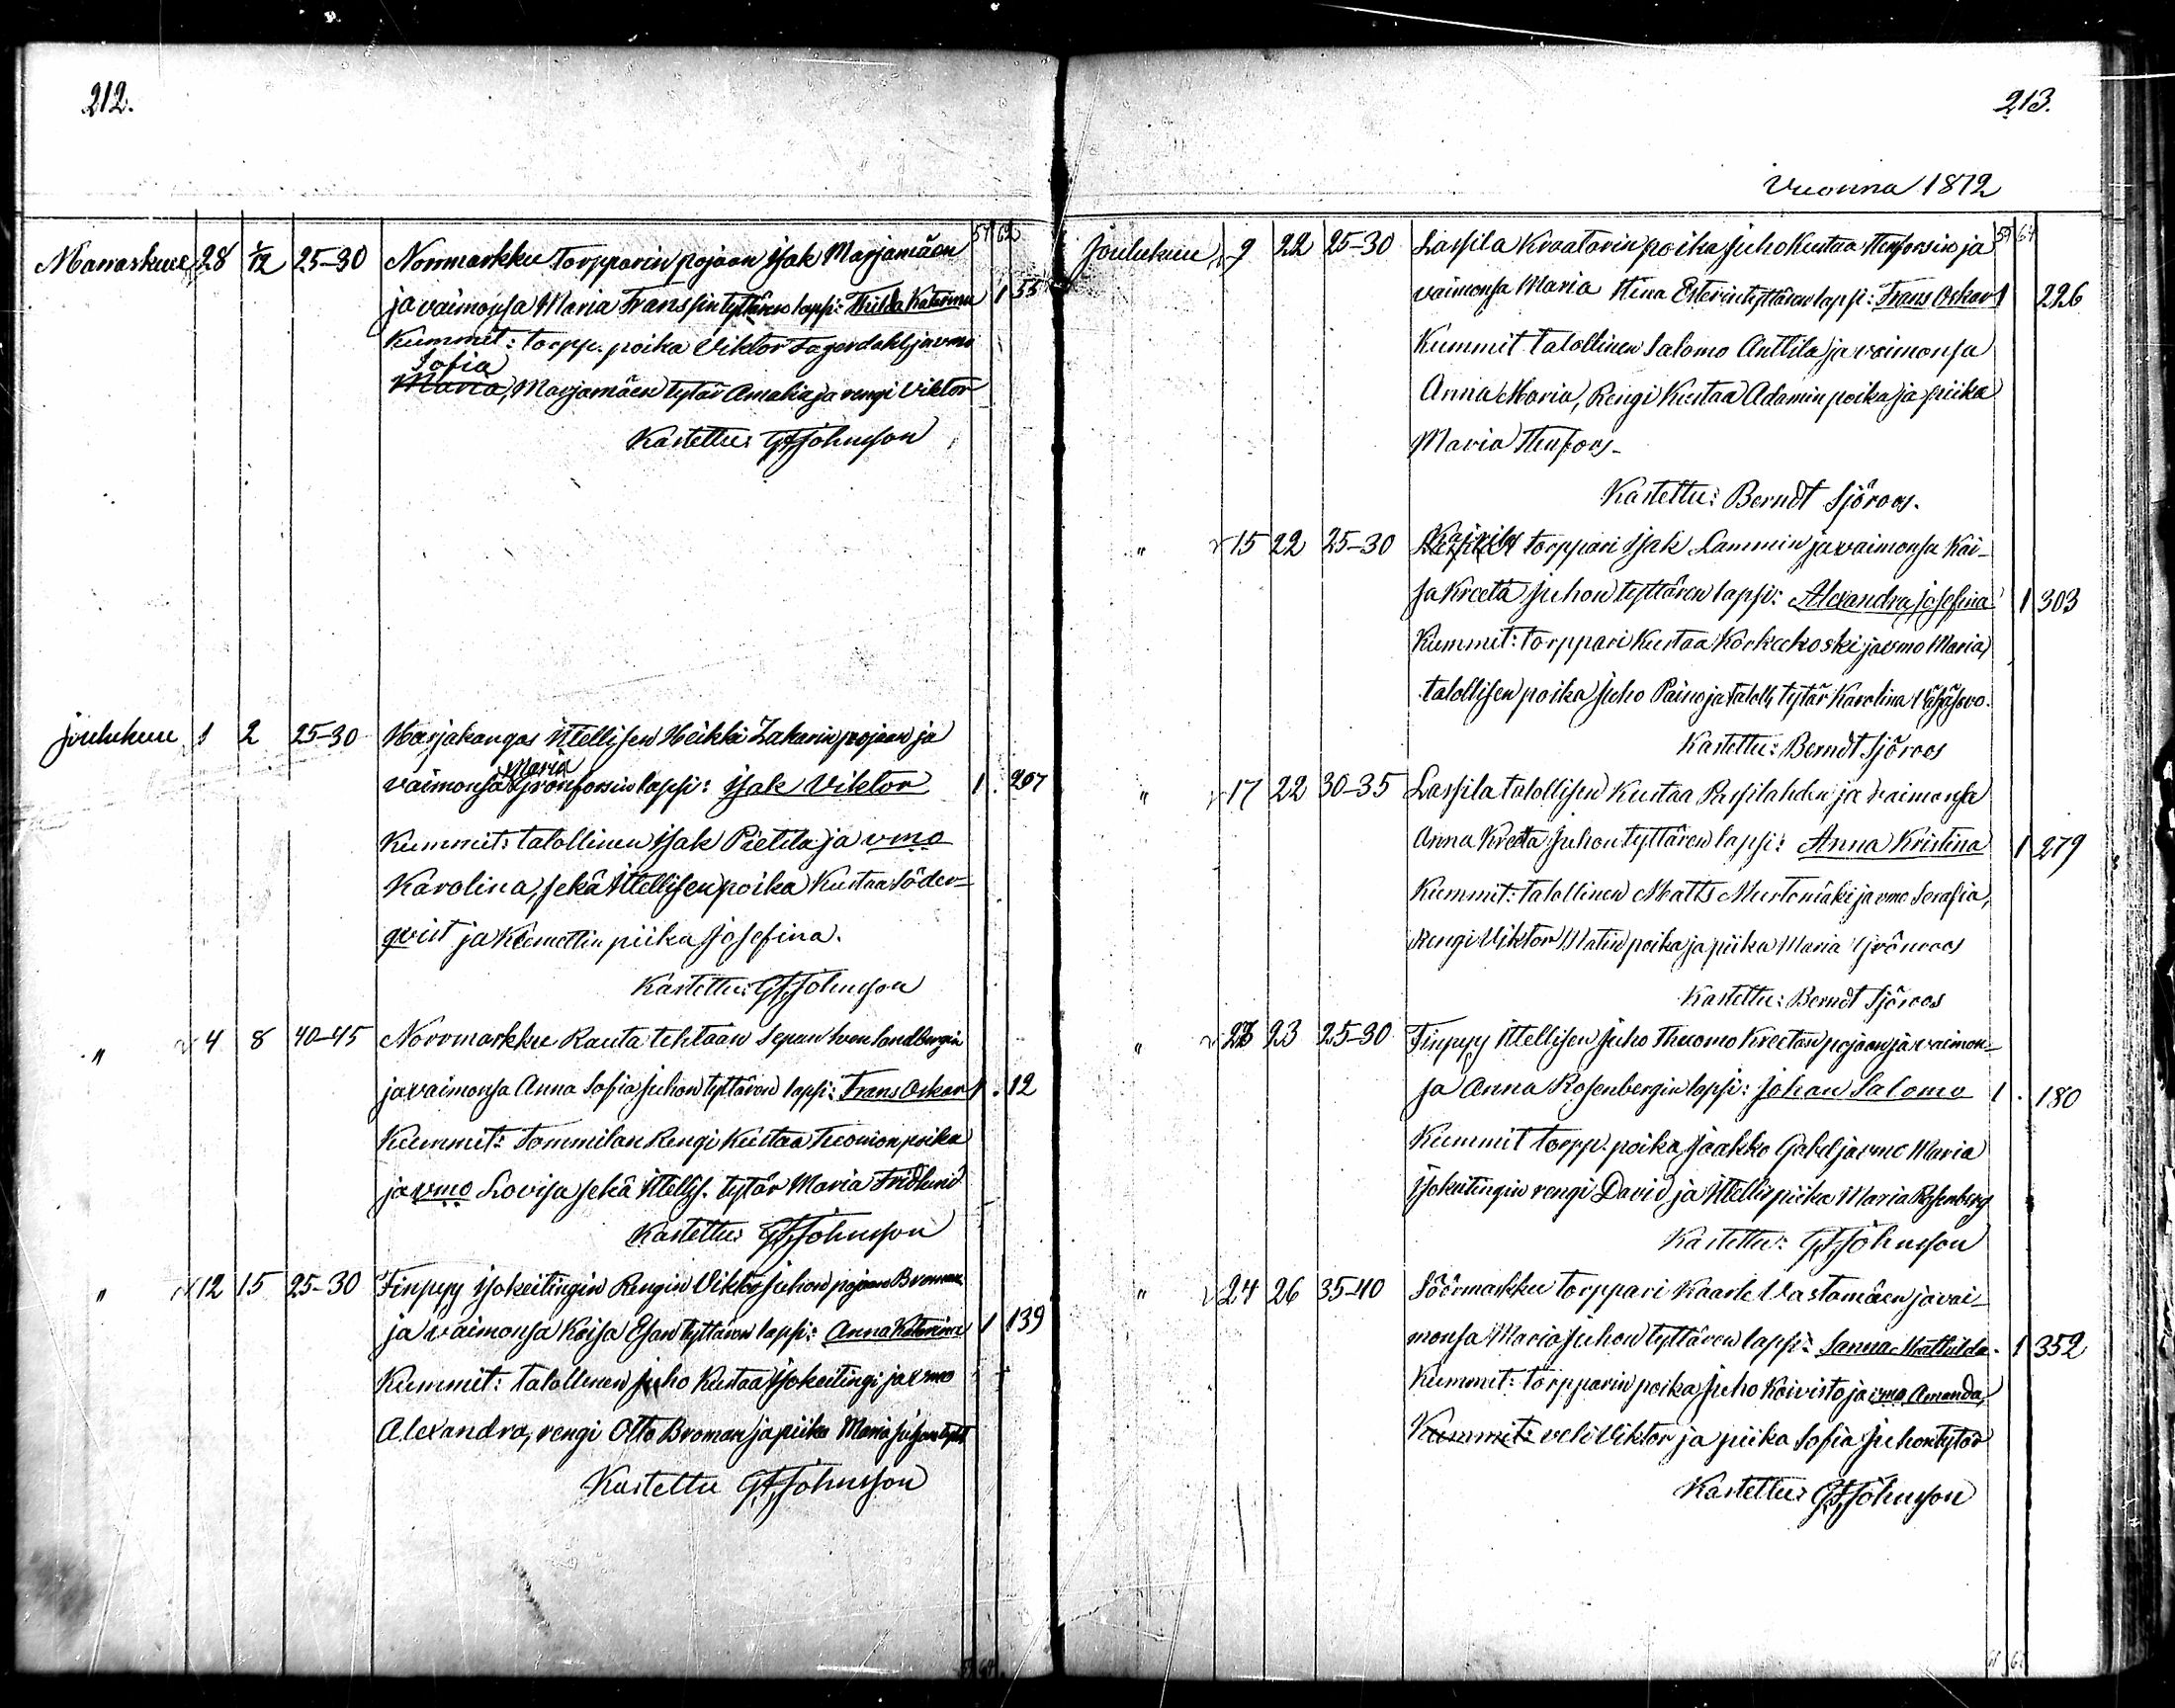 212.
Marraskuu 28 1/12 25-30 Norrmarkku torpparin pojaan Isak Marjamäen
ja vaimonsa Maria Franssin tyttären lapsi: Hilda Katarina 1 55
Kummit: torpp. poika Viktor Lagerdahl ja vmo
Sofia
Maria, Marjamäen tytär Amalia ja rengi Viktor
Kastettu: G F Johnsson
Joulukuu 1 2 25-30 Harjakangas Itellisen Heikki Zakarin pojaan ja
Maria
vaimonsa Grönforsin lapsi: Isak Viktor 1 207
Kummit: talollinen Isak Pietila ja vmo
Karolina, sekä Itellisen poika Kustaa Söder-
qvist ja piika Josefina.
Kastettu: G F Johnsson
" 4 8 40-45 Norrmarkku Rauta tehtaan Sepan landbergin
ja vaimonsa Anna Sofia Juhon tyttären lapsi: Frans Oskar 1 12
Kummit: Tommilan Rengi Kustaa Tuomon poika
ja vmo Lovisa sekä Itellis. tytär Maria Fridlund
Kastettu: G F Johnsson
" 12 15 25-30 Finpyy Isokeitingin Rengin Viktor Juhon pojaan Broman
ja vaimonsa Kaisa Esan tyttären lapsi: Anna Katarina 1 139
Kummit: talollinen Juho Kustaa Isokeitingi ja vmo
Alexandra, rengi Otto Broman ja piika Maria Juhon tytär
Kastettu G F Johnsson
213.
Vuonna 1872
Joulukuu 9 22 25-30 Lassila Kraatarin poika Juho Kustaa Stenforsin ja
vaimonsa Maria Stina Esterin tyttären lapsi: Frans Oskar 1 226
Kummit talollinen Salomo Anttila ja vaimonsa
Anna Maria, Rengi Kustaa Adamin poika ja piika
Maria Stenfors-
Kastettu: Berndt Sjöroos.
" 15 22 25-30 torppari Isak Lammin ja vaimonsa Kai-
sa Kreeta Juhon tyttären lapsi: Alexandra Josefina 1 303
Kummit: torppari Kustaa Korkeekoski ja vmo Maria,
talollisen poika Juho Paino ja taloll, tytär Karolina
Kastettu: Berndt Sjöroos
" 17 22 30-35 Lassila talollisen Kustaa Passilahden ja vaimonsa
Anna Kreeta Juhon tyttären lapsi: Anna Kristina 1 279
Kummit: talollinen Matts Murtomäki ja vmo Serafia,
Rengi Viktor Matin poika ja piika Maria Grönroos
Kastettu: Berndt Sjöroos
" 23 25-30 Finpyy Itellisen Juho Thuomo Kreetan pojaan ja vaimon-
sa Anna Rosenbergin lapsi: Johan Salomo 1 180
Kummit torpp. poika Jaakko ja vmo Maria
Isokeitingin rengi David, ja Itellis piika Maria Rosenberg
Kastettu: G F Johnsson
" 24 26 35-40 Söörmarkku torppari Kaarle Vastamäen ja vai-
monsa Maria Juhon tyttären lapsi: Sanna Mathilda. 1 352
Kummit: torpparin poika Juho Koivisto ja vmo Amanda,
Kummit: veli Viktor ja piika Sofia Juhontytär
Kastettu: G F Johnsson